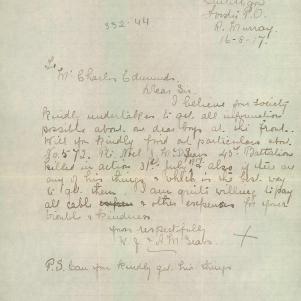 332.44
P.O.
R. Murray.
16-8-17.
To
Mr Charles Edmunds.
Dear Sir,
I believe your Society
kindly undertakes to get all information
possible about our dear boys at the front.
Will you kindly find out particulars about
No. 572. Pte W. Sears 43rd Battalion
killed in action 31st July & also if there are
any of his things & which is the best way
to get them. I am quite willing to pay
all cable & other expenses for your
trouble & kindness
yours respectfully
W. J. & A. M. Sears.
P.S. Can you kindly get his things